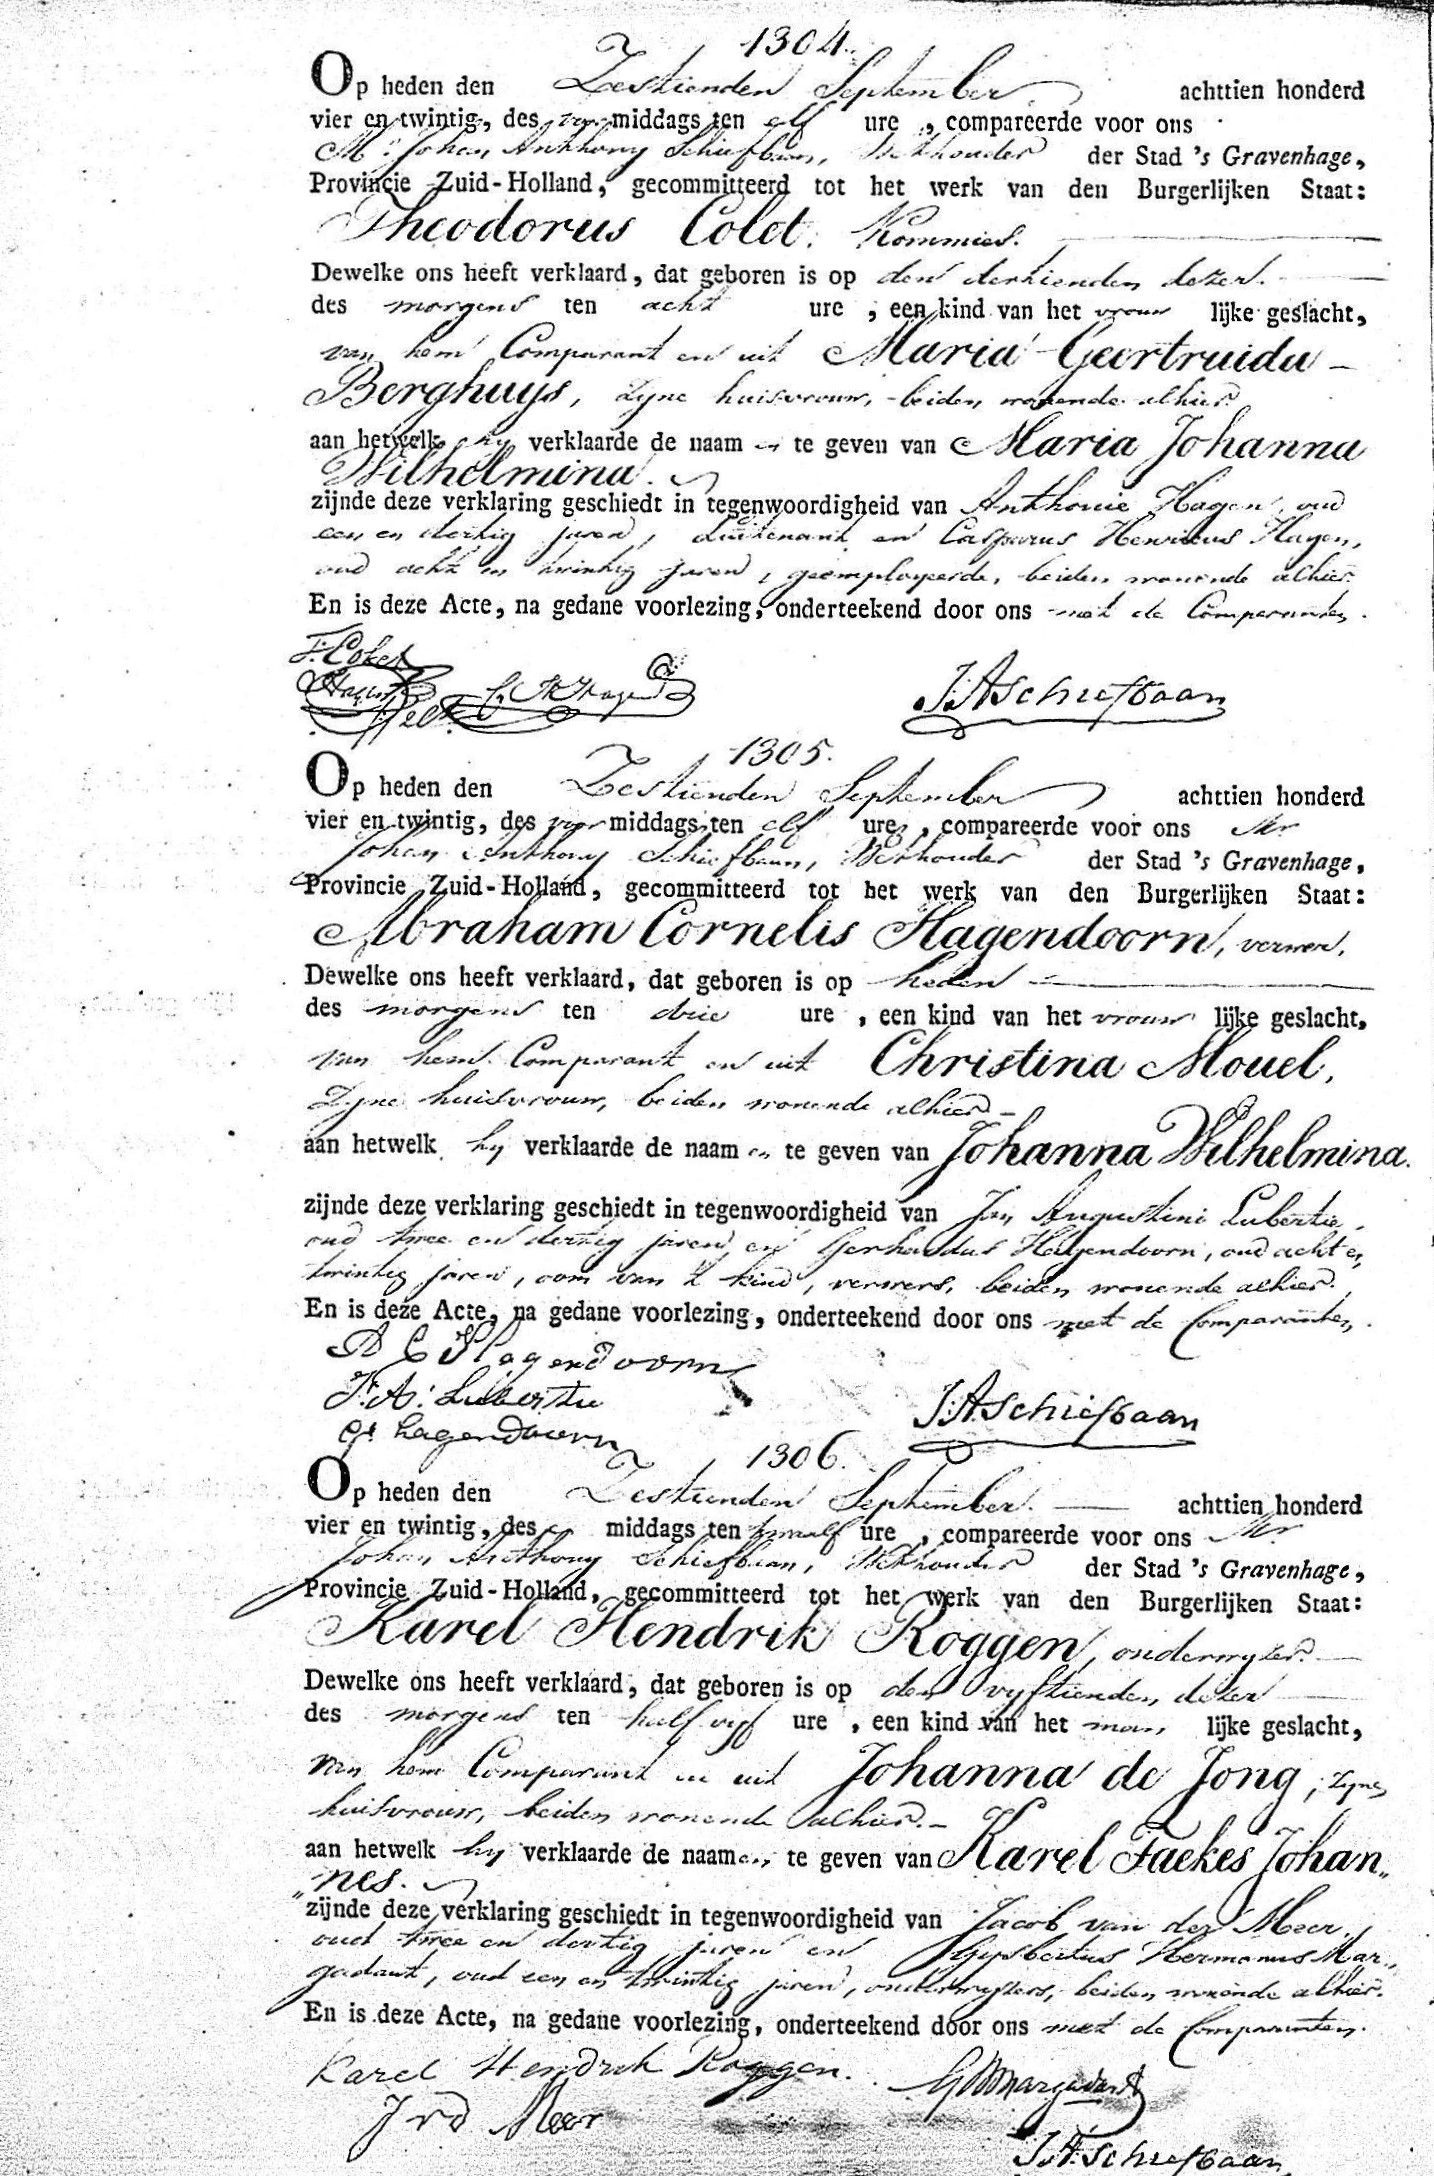 1304.
Op heden den Zestienden September achttien honderd
vier en twintig, des voormiddags ten elf ure , compareerde voor ons
Mr. Johan Anthony Schiefbaan, Wethouder der Stad 's Gravenhage,
Provincie Zuid-Holland, gecommitteerd tot het werk van den Burgerlijken Staat:
Theodorus Colet. Kommies.
Dewelke ons heeft verklaard, dat geboren is op den dertienden dezer.
des morgens ten acht ure , een kind van het vrouw lijke geslacht,
van hem Comparant en uit Maria Geertruida
Berghuys, zyne huisvrouw, beiden wonende alhier
aan hetwelk hy verklaarde de naam en te geven van Maria Johanna
Wilhelmina.
zijnde deze verklaring geschiedt in tegenwoordigheid van Anthonie Hagen, oud
een en dertig jaren, Luitenant, en Casparus Henricus Hagen,
oud acht en twintig jaren, geemployeerde, beiden wonende alhier.
En is deze Acte, na gedane voorlezing, onderteekend door ons met de Comparanten.
J:ASchiefbaan
1305.
Op heden den Zestienden September achttien honderd
vier en twintig, des voormiddags ten elf ure , compareerde voor ons Mr
Johan Anthony Schiefbaan, Wethouder der Stad 's Gravenhage,
Provincie Zuid-Holland, gecommitteerd tot het werk van den Burgerlijken Staat:
Abraham Cornelis Hagendoorn, verwer.
Dewelke ons heeft verklaard, dat geboren is op heden
des morgens ten drie ure , een kind van het vrouw lijke geslacht,
van hem Comparant en uit Christina Mouel,
Zyne huisvrouw, beiden wonende alhier
aan hetwelk hy verklaarde de naam en te geven van Johanna Wilhelmina.
zijnde deze verklaring geschiedt in tegenwoordigheid van Jan Augustini Lubertie,
oud twee en dertig jaren, en Gerhardus Hagendoorn, oud acht en
twintig jaren, oom van 't kind, verwers, beiden wonende alhier.
En is deze Acte, na gedane voorlezing, onderteekend door ons met de Comparanten.
A C Hagendoorn
J:A: Lubertie
G: hagendoorn
J:ASchiefbaan
1306.
Op heden den Zestienden September. achttien honderd
vier en twintig, des middags ten twaalf ure , compareerde voor ons Mr
Johan Anthony Schiefbaan, Wethouder der Stad 's Gravenhage,
Provincie Zuid-Holland, gecommitteerd tot het werk van den Burgerlijken Staat:
Karel Hendrik Roggen, onderwyzer.
Dewelke ons heeft verklaard, dat geboren is op den vyftienden dezer
des morgens ten half vyf ure , een kind van het man lijke geslacht,
van hem Comparant en uit Johanna de Jong, zyne
huisvrouw, beiden wonende alhier.
aan hetwelk hy verklaarde de naam en te geven van Karel Faekes Johan„
„nes.
zijnde deze verklaring geschiedt in tegenwoordigheid van Jacob van der Meer,
oud twee en dertig jaren en Gysbertus Hermanus Mar„
gadant, oud een en twintig jaren, onderwyzers, beiden wonende alhier.
En is deze Acte, na gedane voorlezing, onderteekend door ons met de Comparanten.
Karel Hendrik Roggen.
GHMargadant
J v d Meer
J:ASchiefbaan